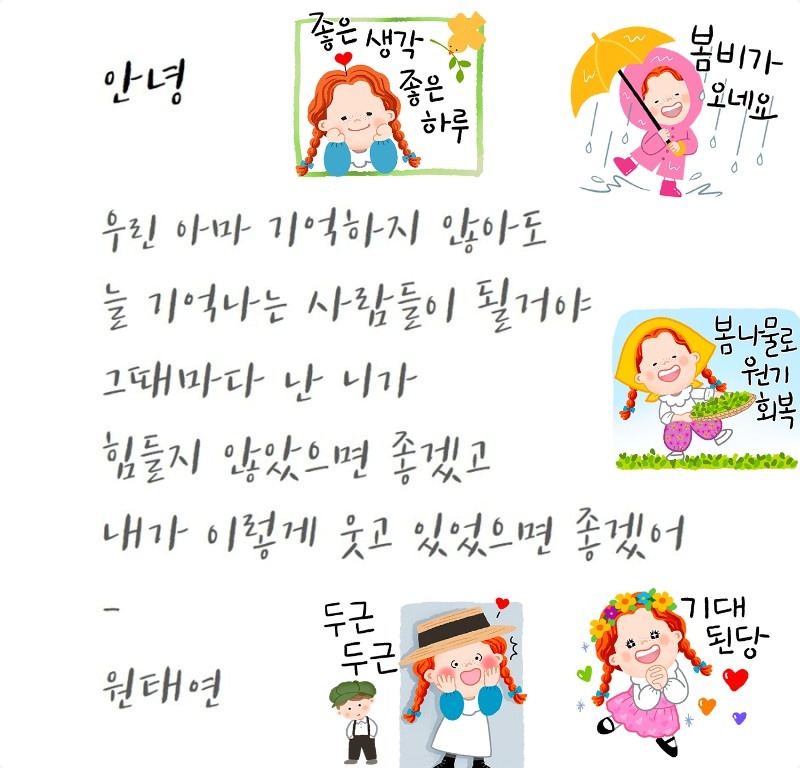 안녕
좋은 생각
좋은
하루
봄비가
오네요
우린 아마 기억하지 않아도
늘 기억나는 사람들이 될거야
그때마다 난 니가
힘들지 않았으면 좋겠고
내가 이렇게 웃고 있었으면 좋겠어
-
원태연
봄나물로
원기
회복
두근
두근
기대
된당